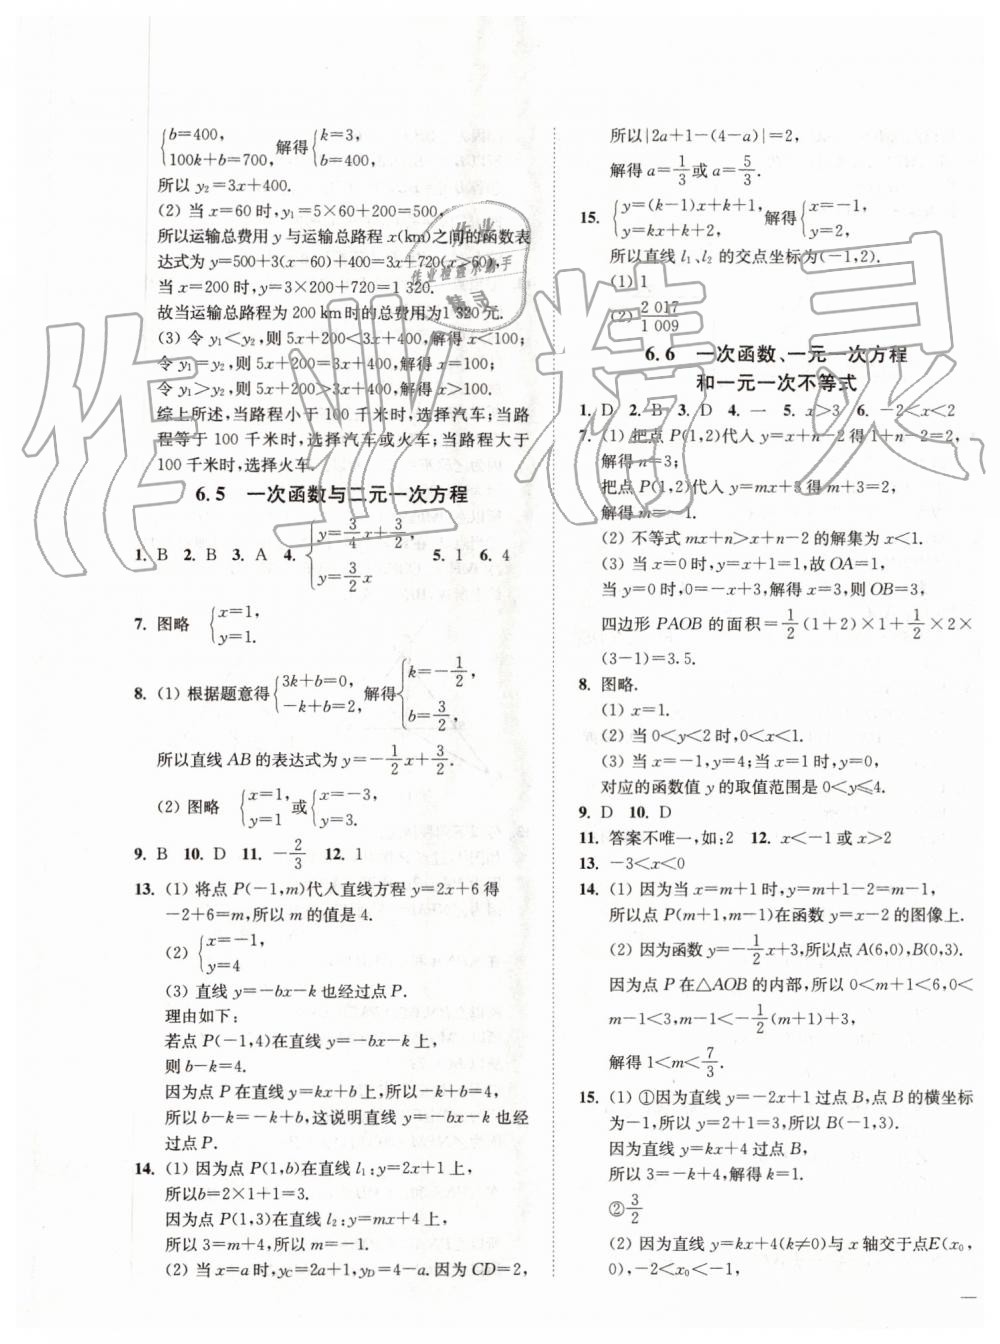 {b=400, 100k+b=700, 解得{k=3, b=400,
所以 y₂=3x+400.
(2) 当 x=60 时,y₁=5×60+200=500,
所以运输总费用 y 与运输总路程 x(km)之间的函数表
达式为 y=500+3(x-60)+400=3x+720(x>60),
当 x=200 时,y=3×200+720=1 320.
故当运输总路程为 200 km时的总费用为1 320元.
(3) 令 y₁<y₂,则 5x+200<3x+400,解得 x<100;
令 y₁=y₂,则 5x+200=3x+400,解得 x=100;
令 y₁>y₂,则 5x+200>3x+400,解得 x>100.
综上所述,当路程小于 100 千米时,选择汽车;当路
程等于 100 千米时,选择汽车或火车;当路程大于
100 千米时,选择火车.
6.5 一次函数与二元一次方程
1. B 2. B 3. A 4. {y=3/4x+3/2, y=3/2x 5. 1 6. 4
7. 图略 {x=1, y=1.
8. (1) 根据题意得{3k+b=0, -k+b=2, 解得{k=-1/2, b=3/2,
所以直线 AB 的表达式为 y=-1/2x+3/2.
(2) 图略 {x=1, y=1 或{x=-3, y=3.
9. B 10. D 11. -2/3 12. 1
13. (1) 将点 P(-1,m)代入直线方程 y=2x+6得
-2+6=m,所以 m 的值是 4.
(2) {x=-1, y=4
(3) 直线 y=-bx-k 也经过点 P.
理由如下:
若点 P(-1,4)在直线 y=-bx-k 上,
则 b-k=4.
因为点 P 在直线 y=kx+b 上,所以-k+b=4,
所以 b-k=-k+b,这说明直线 y=-bx-k 也经
过点 P.
14. (1) 因为点 P(1,b)在直线 l₁:y=2x+1上,
所以b=2×1+1=3.
因为点 P(1,3)在直线 l₂:y=mx+4 上,
所以 3=m+4,所以 m=-1.
(2) 当 x=a 时,y_C=2a+1,y_D=4-a.因为 CD=2,
所以|2a+1-(4-a)|=2,
解得 a=1/3或 a=5/3.
15. {y=(k-1)x+k+1, y=kx+k+2, 解得{x=-1, y=2,
所以直线 l₁、l₂ 的交点坐标为(-1,2).
(1) 1
(2) 2 017/1 009
6.6 一次函数、一元一次方程
和一元一次不等式
1. D 2. B 3. D 4. 一 5. x>3 6. -2<x<2
7. (1) 把点 P(1,2)代入 y=x+n-2 得 1+n-2=2,
解得 n=3;
把点 P(1,2)代入 y=mx+3 得 m+3=2,
解得 m=-1.
(2) 不等式 mx+n>x+n-2 的解集为 x<1.
(3) 当 x=0 时,y=x+1=1,故 OA=1,
当 y=0 时,0=-x+3,解得 x=3,则 OB=3,
四边形 PAOB 的面积=1/2(1+2)×1+1/2×2×
(3-1)=3.5.
8. 图略.
(1) x=1.
(2) 当 0<y<2 时,0<x<1.
(3) 当 x=-1 时,y=4;当 x=1 时,y=0,
对应的函数值 y 的取值范围是 0<y≤4.
9. D 10. D
11. 答案不唯一,如:2 12. x<-1 或 x>2
13. -3<x<0
14. (1) 因为当 x=m+1 时,y=m+1-2=m-1,
所以点 P(m+1,m-1)在函数 y=x-2 的图像上.
(2) 因为函数 y=-1/2x+3,所以点 A(6,0),B(0,3).
因为点 P 在△AOB 的内部,所以 0<m+1<6,0<
m-1<3,m-1<-1/2(m+1)+3,
解得 1<m<7/3.
15. (1) ①因为直线 y=-2x+1 过点 B,点 B 的横坐标
为-1,所以 y=2+1=3,所以 B(-1,3).
因为直线 y=kx+4 过点 B,
所以 3=-k+4,解得 k=1.
②3/2
(2) 因为直线 y=kx+4(k≠0)与 x 轴交于点E(x₀,
0),-2<x₀<-1,
作业精灵
作业
作业检查小助手
精灵